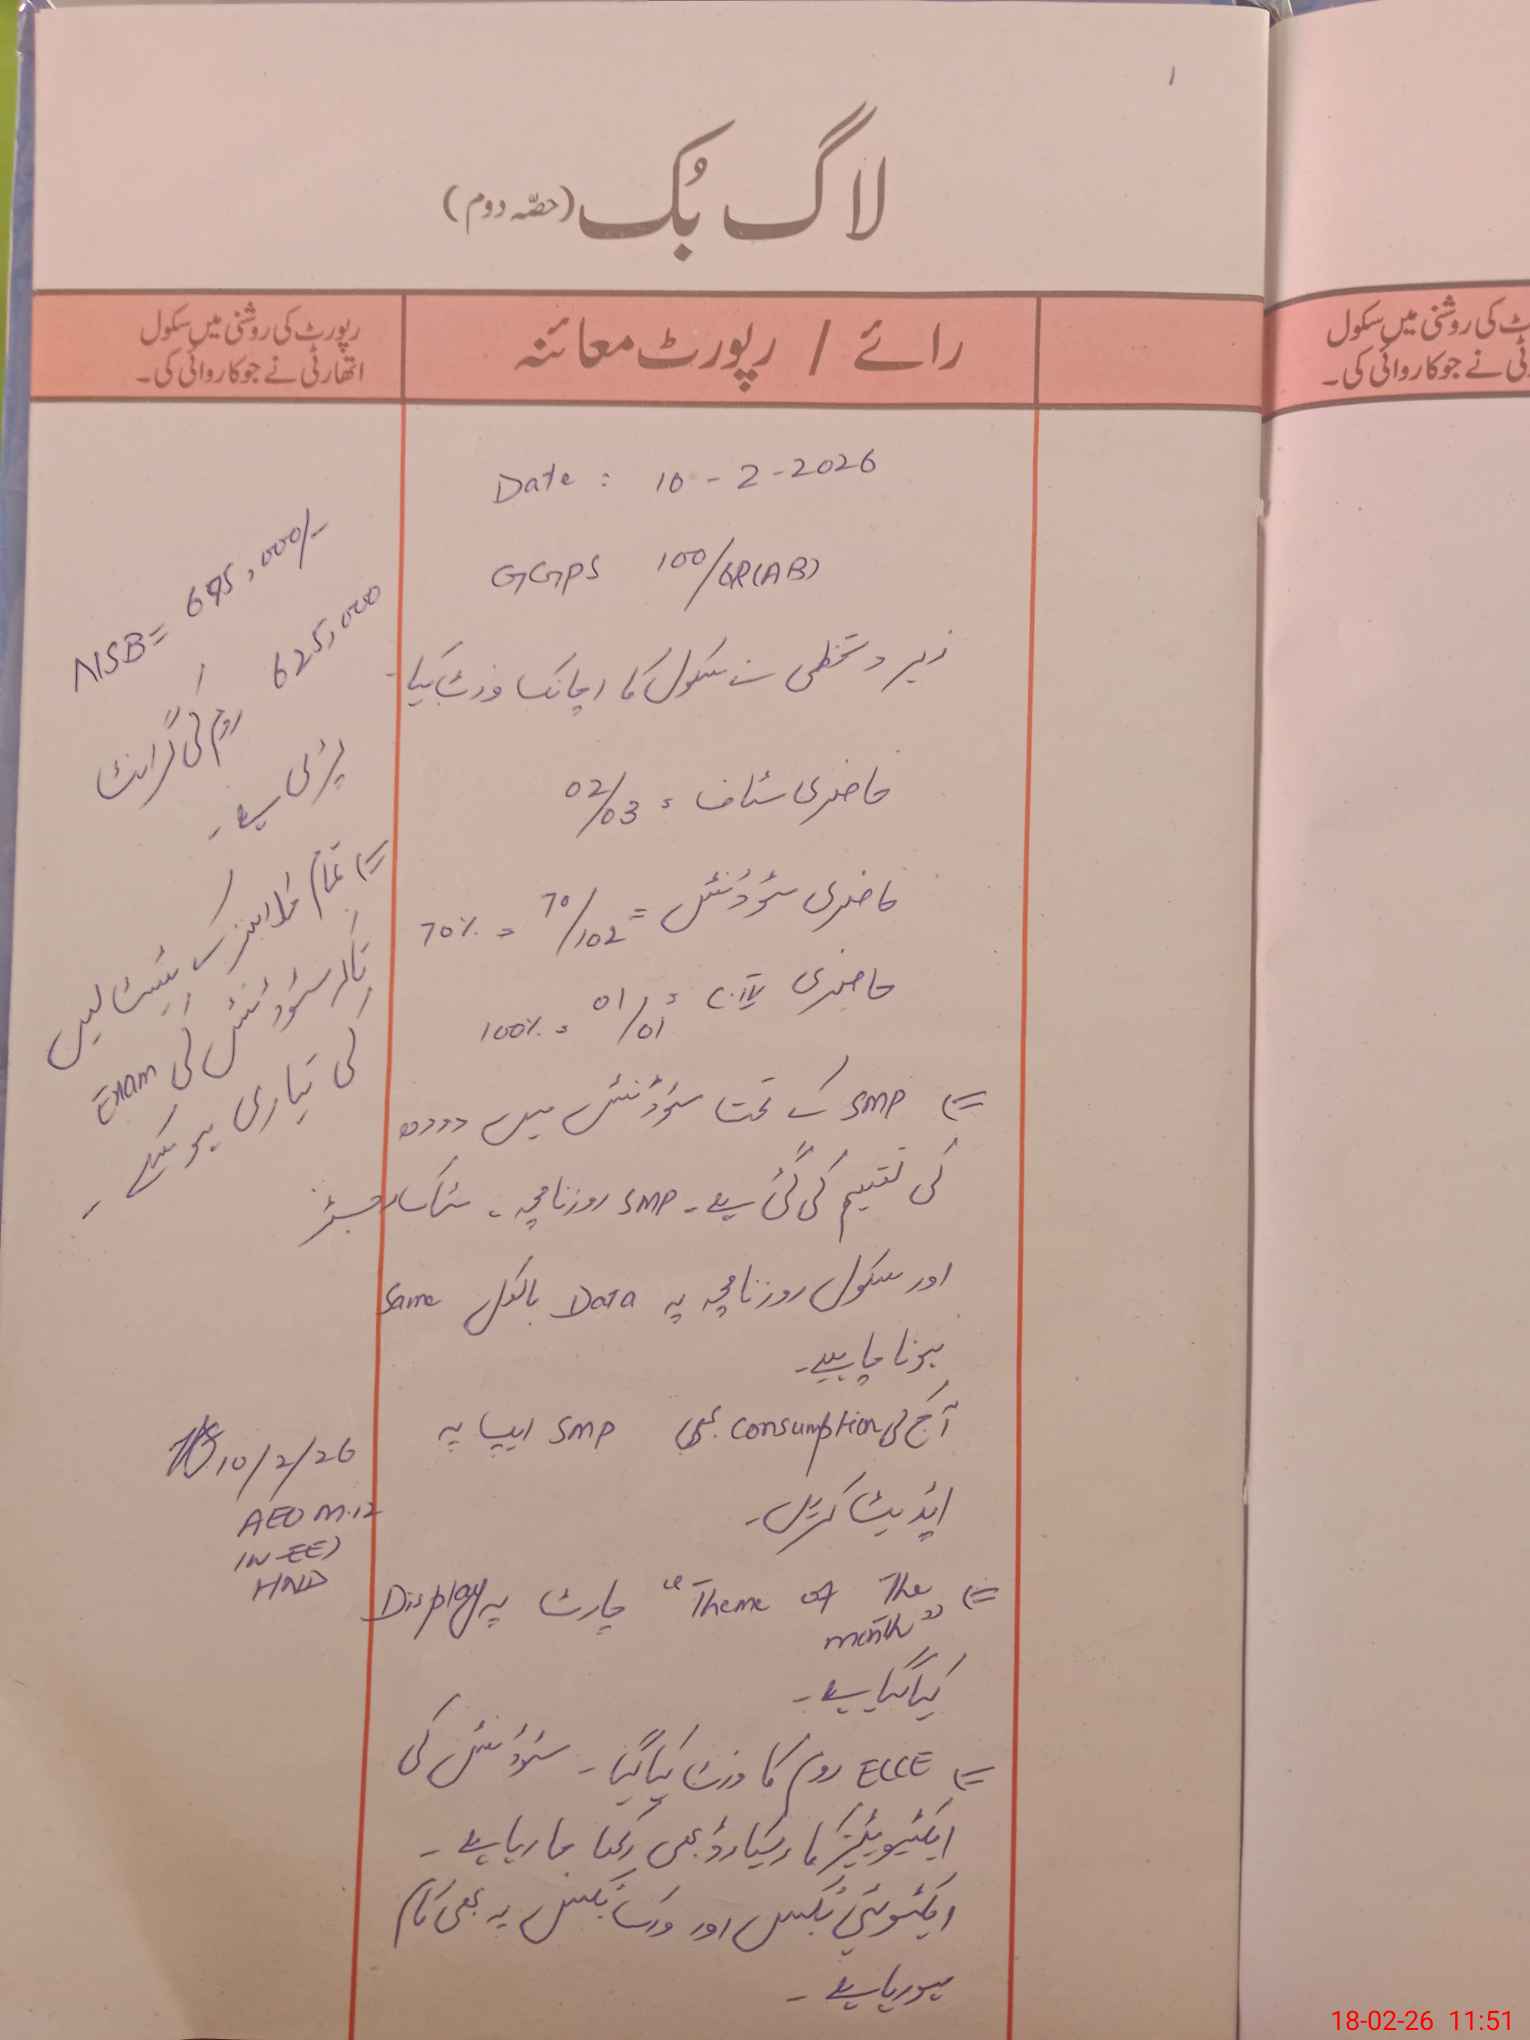 ۱
لاگ بُک (حصّہ دوم)
رائے / رپورٹ معائنہ
رپورٹ کی روشنی میں سکول
اتھارٹی نے جو کاروائی کی۔
Date : 10-2-2026
GGPS 100/6R(AB)
زیر دستخطی نے سکول کا اچانک وزٹ کیا۔
حاضری سٹاف = 02/03
حاضری سٹوڈنٹس = 70/102 = 70%
حاضری = 01/01 = 100%
(= SMP کے تحت سٹوڈنٹس میں دودھ
کی تقسیم کی گئی ہے۔ SMP روزنامچہ، سٹاک رجسٹر
اور سکول روزنامچہ پہ Data بالکل Same
ہونا چاہیے۔
آج کی consumption بھی SMP ایپ پہ
اپڈیٹ کریں۔
(= "Theme of The month" چارٹ پہ Display
کیا گیا ہے۔
(= ECCE روم کا وزٹ کیا گیا۔ سٹوڈنٹس کی
ایکٹیویٹیز کا ریکارڈ بھی رکھا جا رہا ہے۔
ایکٹیوٹی بکس اور ورک بکس پہ بھی کام
ہو رہا ہے۔
NSB = 695,000/-
625,000
روم کی گرانٹ
پڑی ہے۔
(= تمام کے ٹیسٹ لیں
تاکہ سٹوڈنٹس کی Exam
کی تیاری ہو سکے۔
10/2/26
AEO M.12
(W-EE)
HND
ٹ کی روشنی میں سکول
ٹی نے جو کاروائی کی۔
18-02-26 11:51